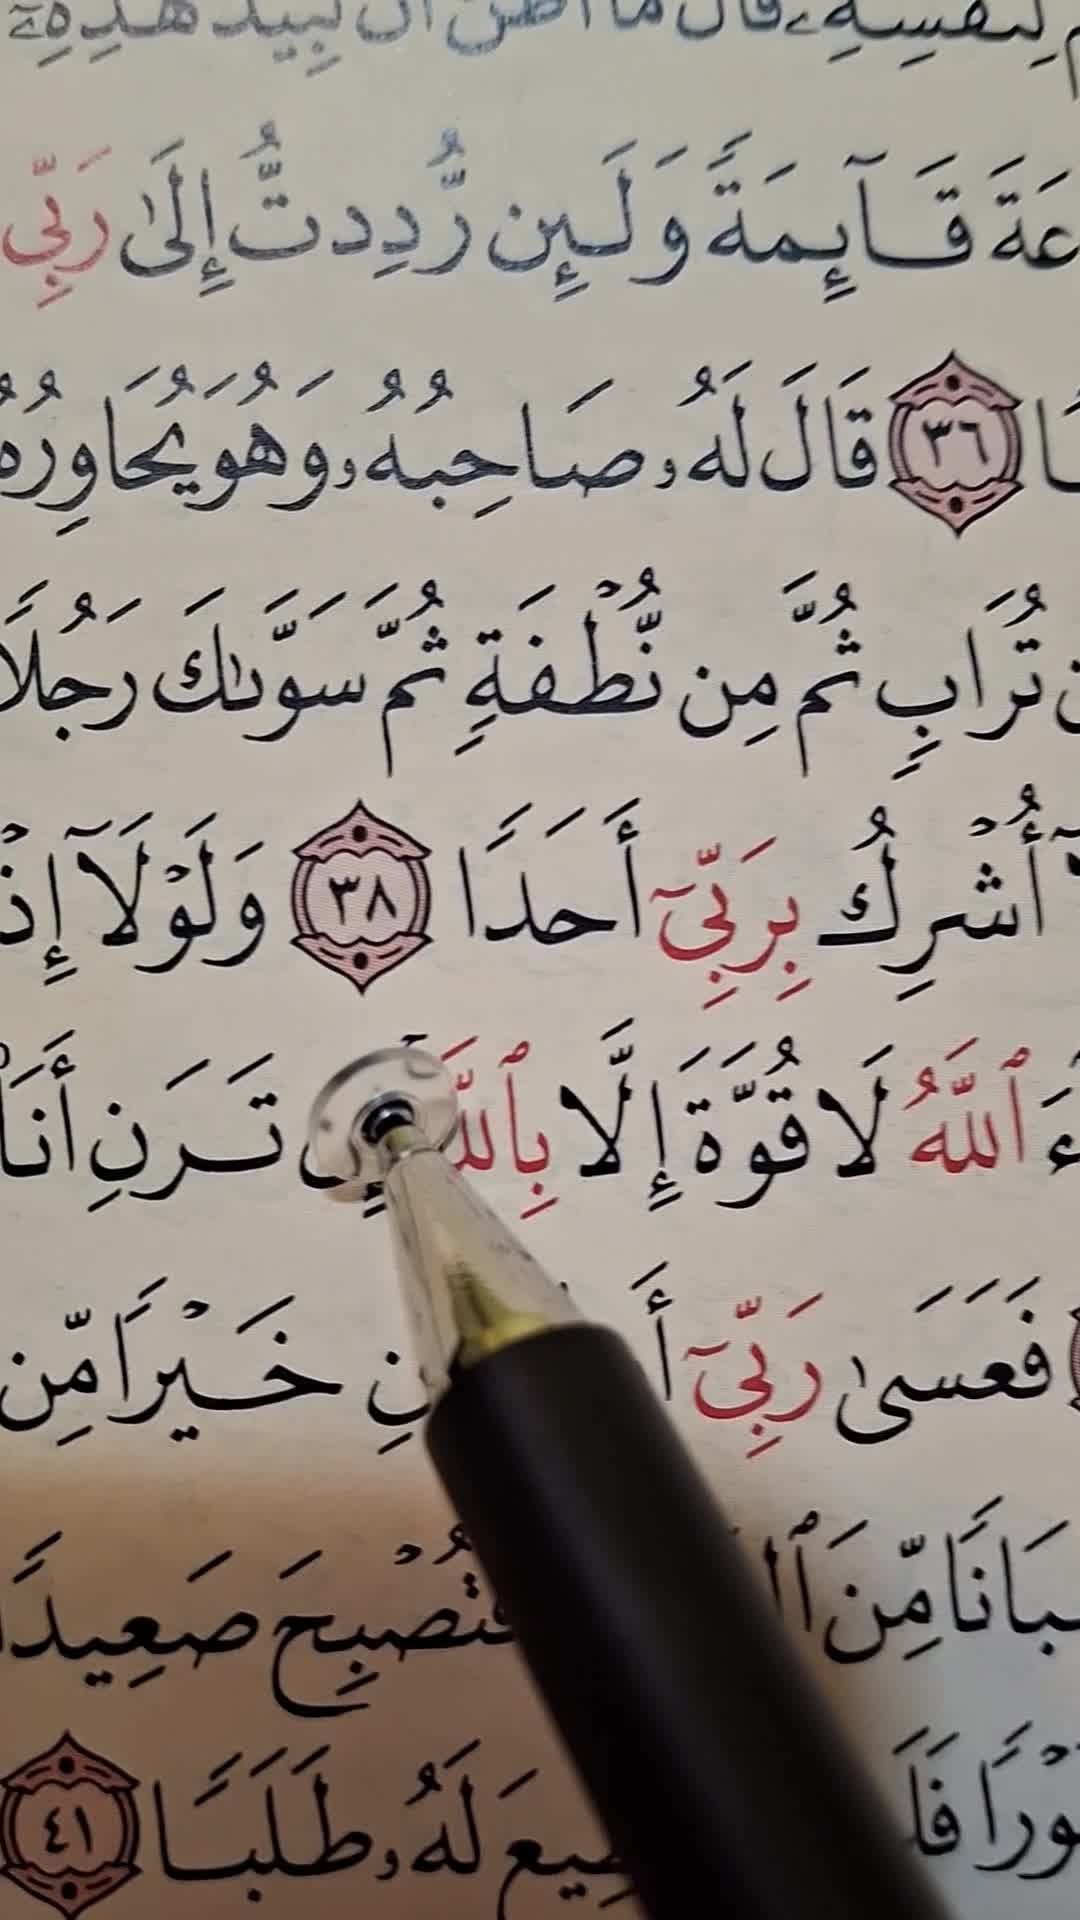 لِنَفْسِهِۦ قَالَ مَآ أَظُنُّ أَن تَبِيدَ هَٰذِهِۦٓ
عَةَ قَآئِمَةً وَلَئِن رُّدِدتُّ إِلَىٰ رَبِّى
٣٦ قَالَ لَهُۥ صَاحِبُهُۥ وَهُوَ يُحَاوِرُهُ
تُرَابٍ ثُمَّ مِن نُّطْفَةٍ ثُمَّ سَوَّىٰكَ رَجُلًا
أُشْرِكُ بِرَبِّىٓ أَحَدًا ٣٨ وَلَوْلَآ إِذْ
ءَ ٱللَّهُ لَا قُوَّةَ إِلَّا بِٱللَّ إِن تَرَنِ أَنَا۠
فَعَسَىٰ رَبِّىٓ أَ نِ خَيْرًا مِّن
بَانًا مِّنَ ٱل فَتُصْبِحَ صَعِيدًا
وْرًا فَلَ طِيعَ لَهُۥ طَلَبًا ٤١